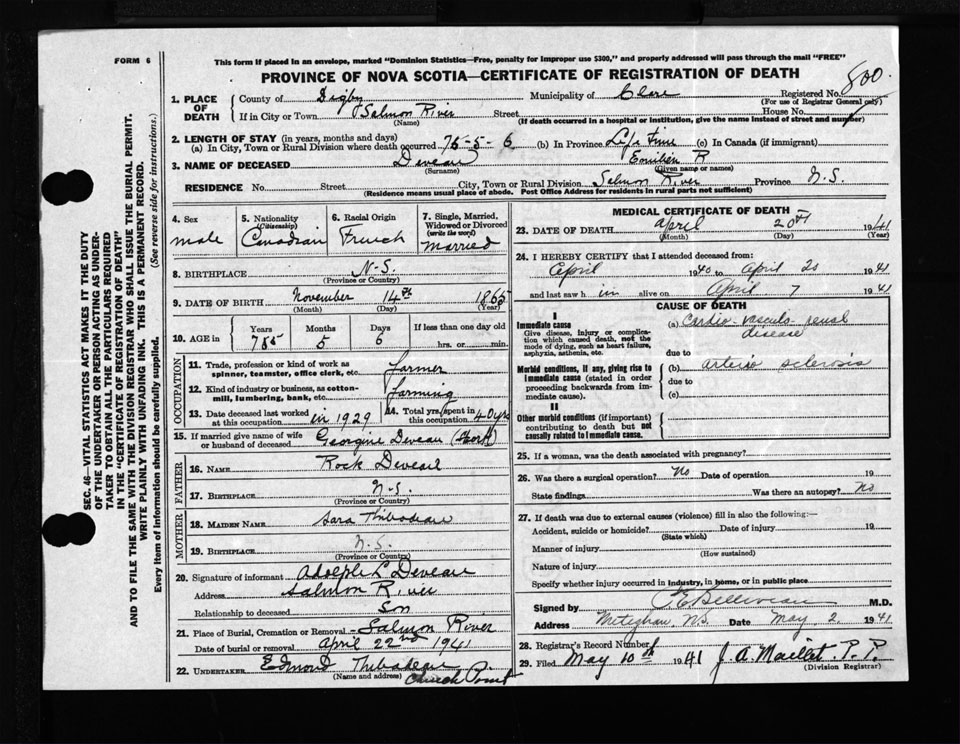 FORM 6
This form if placed in an envelope, marked "Dominion Statistics—Free, penalty for improper use $300," and properly addressed will pass through the mail "FREE"
PROVINCE OF NOVA SCOTIA—CERTIFICATE OF REGISTRATION OF DEATH
800
SEC. 46—VITAL STATISTICS ACT MAKES IT THE DUTY
OF THE UNDERTAKER OR PERSON ACTING AS UNDER-
TAKER TO OBTAIN ALL THE PARTICULARS REQUIRED
IN THE "CERTIFICATE OF REGISTRATION OF DEATH"
AND TO FILE THE SAME WITH THE DIVISION REGISTRAR WHO SHALL ISSUE THE BURIAL PERMIT.
WRITE PLAINLY WITH UNFADING INK. THIS IS A PERMANENT RECORD.
Every item of Information should be carefully supplied. (See reverse side for instructions.)
1. PLACE OF DEATH County of Digby Municipality of Clare Registered No.
(For use of Registrar General only)
If in City or Town Salmon River Street House No.
(Name) (If death occurred in a hospital or institution, give the name instead of street and number)
2. LENGTH OF STAY (in years, months and days)
(a) In City, Town or Rural Division where death occurred 75-5-6 (b) In Province Life Time (c) In Canada (if immigrant)
3. NAME OF DECEASED Deveau Emilien R
(Surname) (Given name or names)
RESIDENCE No. Street City, Town or Rural Division Salmon River Province N.S.
(Residence means usual place of abode. Post Office Address for residents in rural parts not sufficient)
4. Sex male
5. Nationality (Citizenship) Canadian
6. Racial Origin French
7. Single, Married, Widowed or Divorced (write the word) Married
8. BIRTHPLACE N.S.
(Province or Country)
9. DATE OF BIRTH November 14th 1865
(Month) (Day) (Year)
10. AGE in Years Months Days If less than one day old
75 5 6 hrs. or min.
OCCUPATION
11. Trade, profession or kind of work as spinner, teamster, office clerk, etc. farmer
12. Kind of industry or business, as cotton-mill, lumbering, bank, etc. farming
13. Date deceased last worked at this occupation in 1929
14. Total yrs. spent in this occupation 40 yrs
15. If married give name of wife or husband of deceased Georgine Deveau
FATHER
16. NAME Rock Deveau
17. BIRTHPLACE N.S.
(Province or Country)
MOTHER
18. MAIDEN NAME Sara Thibodeau
19. BIRTHPLACE N.S.
(Province or Country)
20. Signature of informant Adolphe L Deveau
Address Salmon River
Relationship to deceased Son
21. Place of Burial, Cremation or Removal Salmon River
Date of burial or removal April 22nd 1941
22. UNDERTAKER Edmond Thibodeau
(Name and address) Church Point
MEDICAL CERTIFICATE OF DEATH
23. DATE OF DEATH April 20th 1941
(Month) (Day) (Year)
24. I HEREBY CERTIFY that I attended deceased from:
April 1940 to April 20 1941
and last saw him alive on April 7 1941
CAUSE OF DEATH
I
Immediate cause
Give disease, injury or complication which caused death, not the mode of dying, such as heart failure, asphyxia, asthenia, etc.
(a) Cardio-vasculo-renal disease
due to
Morbid conditions, if any, giving rise to immediate cause (stated in order proceeding backwards from immediate cause).
(b) arterio sclerosis
due to
(c)
II
Other morbid conditions (if important) contributing to death but not causally related to immediate cause.
25. If a woman, was the death associated with pregnancy?
26. Was there a surgical operation? No Date of operation 19
State findings Was there an autopsy? No
27. If death was due to external causes (violence) fill in also the following:—
Accident, suicide or homicide? Date of injury 19
(State which)
Manner of injury
(How sustained)
Nature of injury
Specify whether injury occurred in industry, in home, or in public place
Signed by P E Belliveau M.D.
Address Meteghan N.S. Date May 2 1941
28. Registrar's Record Number
29. Filed May 10th 1941 J. A. Maillet. P. P.
(Division Registrar)